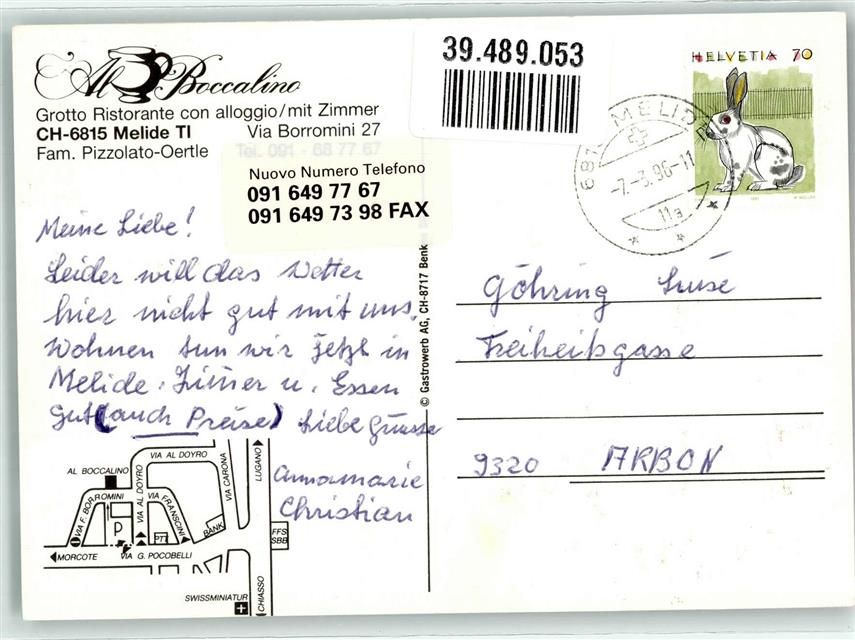 Al Boccalino
Grotto Ristorante con alloggio/mit Zimmer
CH-6815 Melide TI Via Borromini 27
Fam. Pizzolato-Oertle Tel. 091 - 68 77 67
Nuovo Numero Telefono
091 649 77 67
091 649 73 98 FAX
39.489.053
HELVETIA 70
6815 MELIDE
-7.-3.96-11
11a
Meine Liebe!
Leider will das Wetter
hier nicht gut mit uns.
Wohnen tun wir jetzt in
Melide. Zimer u. Essen
gut (auch Preise) Liebe Grüsse
Annamarie
Christian
© Gastrowerb AG, CH-8717 Benk
Göhring Luise
Freiheitsgasse
9320 ARBON
VIA AL DOYRO
AL BOCCALINO
VIA F. BORROMINI
VIA AL DOYRO
VIA FRANSCINI
VIA CARONA
LUGANO
P
PTT
BANK
FFS
SBB
MORCOTE
VIA G. POCOBELLI
SWISSMINIATUR
CHIASSO